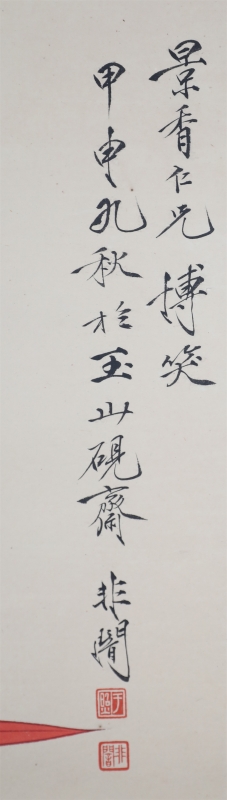 景香仁兄 搏笑
甲申九秋於玉山硯齋 非闇
于照
非闇